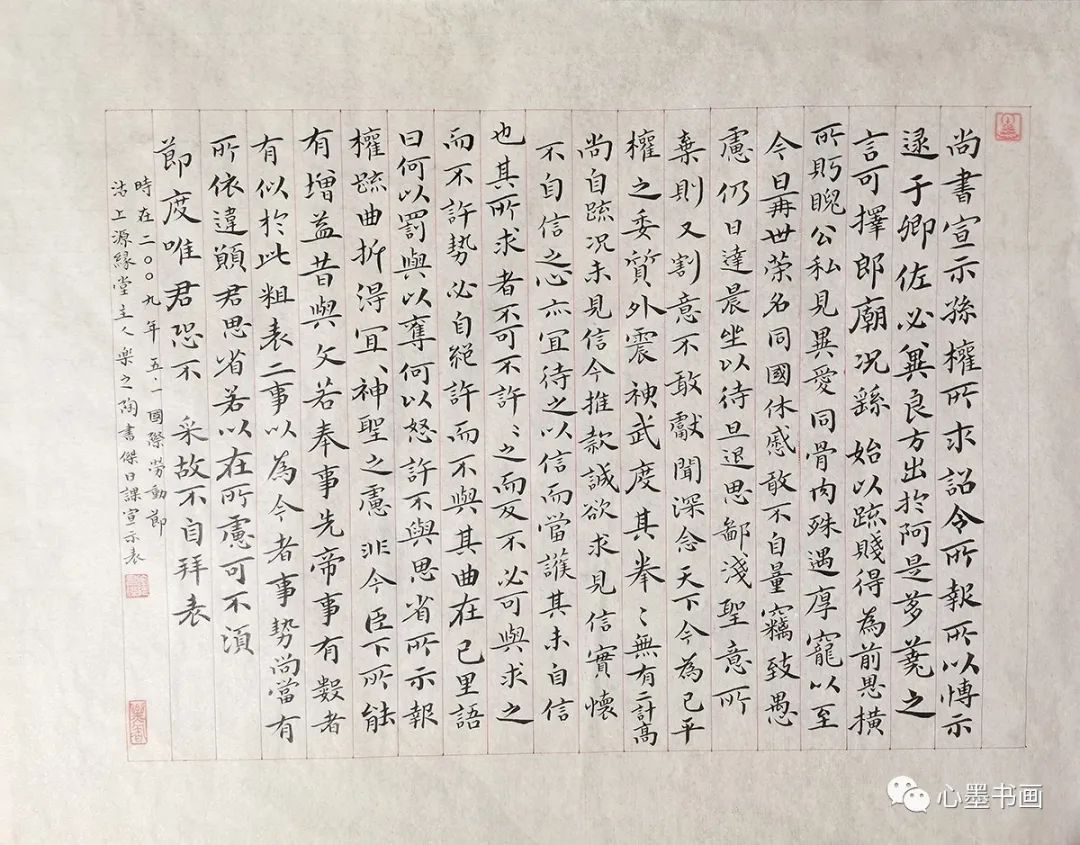 尚書宣示孫權所求詔令所報所以博示
逮于卿佐必冀良方出於阿是芻蕘之
言可擇郎廟況繇始以疏賤得為前恩橫
所眄睨公私見異愛同骨肉殊遇厚寵以至
今日再世荣名同國休慼敢不自量竊致愚
慮仍日達晨坐以待旦退思鄙淺聖意所
棄則又割意不敢獻聞深念天下今為已平
權之委質外震神武度其拳〻無有二計高
尚自疏況未見信今推款誠欲求見信實懷
不自信之心亦宜待之以信而當護其未自信
也其所求者不可不許〻之而反不必可與求之
而不許勢必自絕許而不與其曲在己里語
曰何以罰與以奪何以怒許不與思省所示報
權疏曲折得宜神聖之慮非今臣下所能
有增益昔與文若奉事先帝事有數者
有似於此粗表二事以為今者事勢尚當有
所依違願君思省若以在所慮可不須
節度唯君恐不采故不自拜表
時在二〇〇九年五.一國際勞動節
沽上源緣堂主人樂之陶書傑日課宣示表
心墨书画